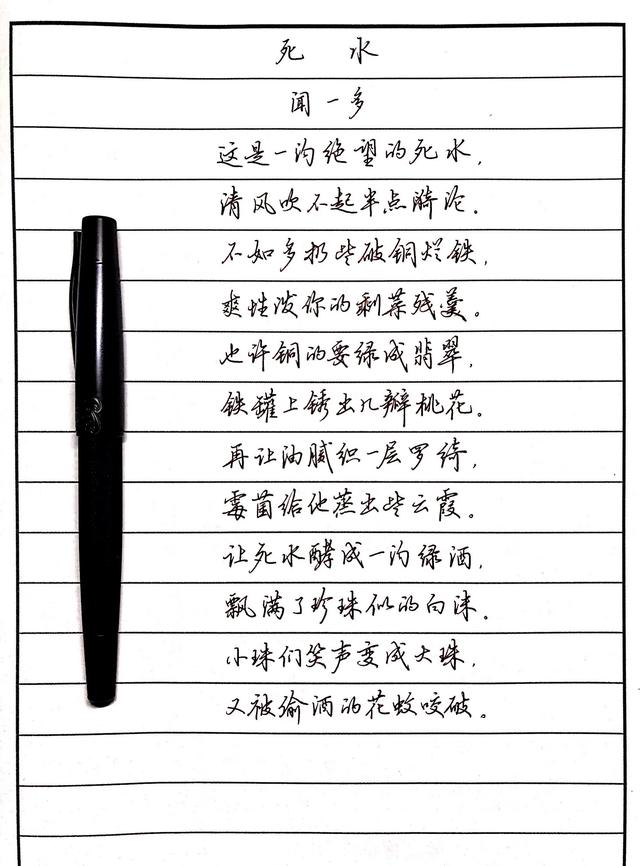 死 水
闻一多
这是一沟绝望的死水，
清风吹不起半点漪沦。
不如多扔些破铜烂铁，
爽性泼你的剩菜残羹。
也许铜的要绿成翡翠，
铁罐上锈出几瓣桃花。
再让油腻织一层罗绮，
霉菌给他蒸出些云霞。
让死水酵成一沟绿酒，
飘满了珍珠似的白沫。
小珠们笑声变成大珠，
又被偷酒的花蚊咬破。